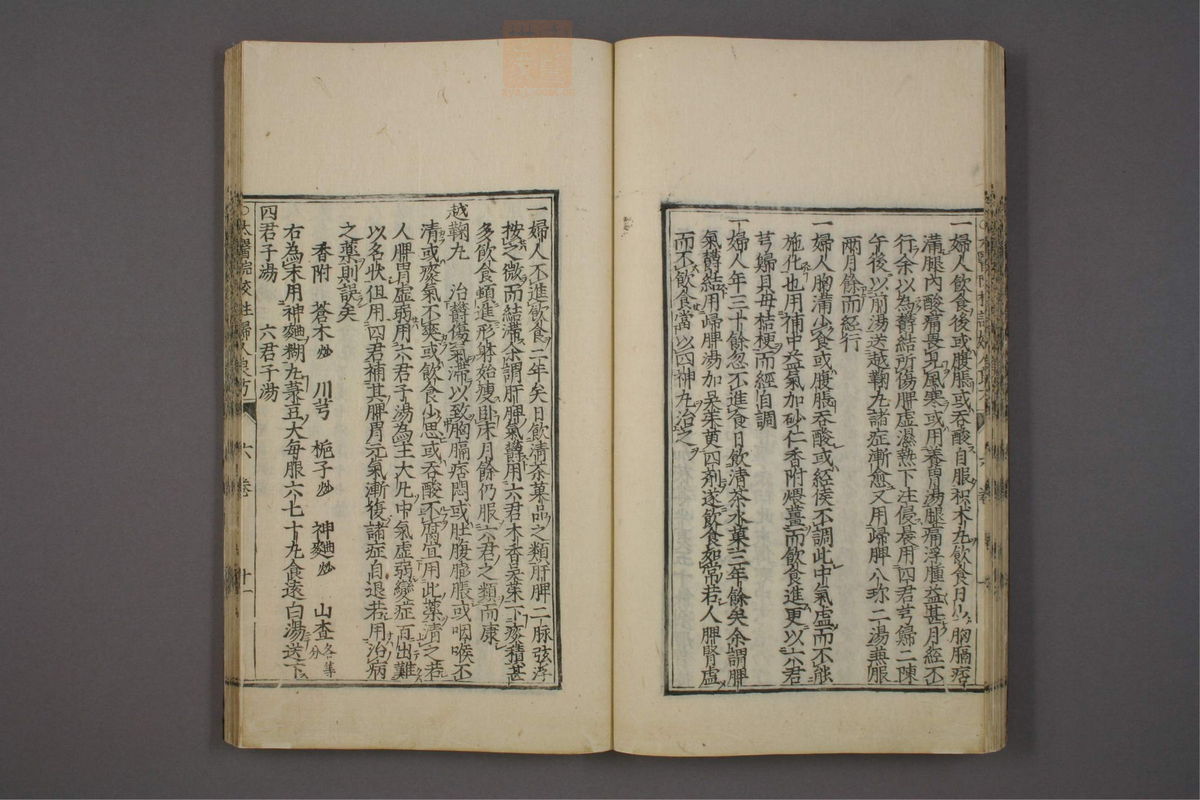 一婦人飲食後或腹脹或吞酸自服枳朮丸飲食日少胸膈痞
滿腿內酸痛畏見風寒或用養胃湯腿痛浮腫益甚月經不
行余以為欝結所傷脾虛濕熱下注侵晨用四君芎歸二陳
午後以前湯送越鞠丸諸症漸愈又用歸脾八珍二湯兼服
兩月餘而經行
一婦人胸滿少食或腹脹吞酸或經候不調此中氣虛而不能
施化也用補中益氣加砂仁香附煨薑而飲食進更以六君
芎歸貝母桔梗而經自調
一婦人年三十餘忽不進食日飲清茶水菓三年餘矣余謂脾
氣欝結用歸脾湯加吳茱萸四剤遂飲食如常若人脾腎虛
而不飲食當以四神丸治之
一婦人不進飲食二年矣日飲清茶菓品之類肝脾二脉弦浮
按之微而結滯余謂肝脾氣欝用六君木香吳茱下痰積甚
多飲食頓進形躰始瘦卧床月餘仍服六君之類而康
越鞠丸 治欝傷氣滯以致胸膈痞悶或肚腹膨脹或咽喉不
清或痰氣不爽或飲食少思或吞酸不腐宜用此藥清之若
人脾胃虛弱用六君子湯為主大凡中氣虛弱變症百出難
以名狀但用四君補其脾胃元氣漸復諸症自退若用治病
之藥則誤矣
香附 蒼木炒 川芎 梔子炒 神麯炒 山査各等分
右為末用神麯糊丸菉豆大每服六七十丸食遠白湯送下
四君子湯 六君子湯
○太醫院校註婦人良方 六卷 十一